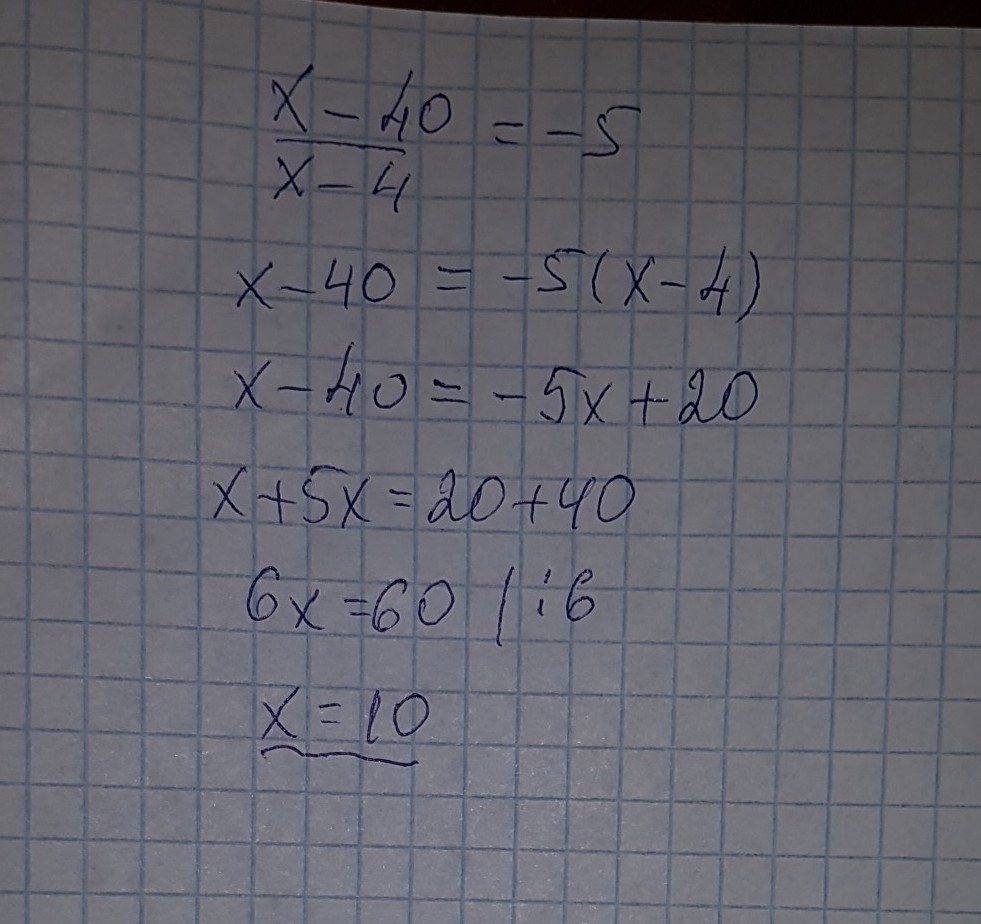 x-40 = -5
x-4
x-40 = -5(x-4)
x-40 = -5x+20
x+5x=20+40
6x=60 /:6
x=10